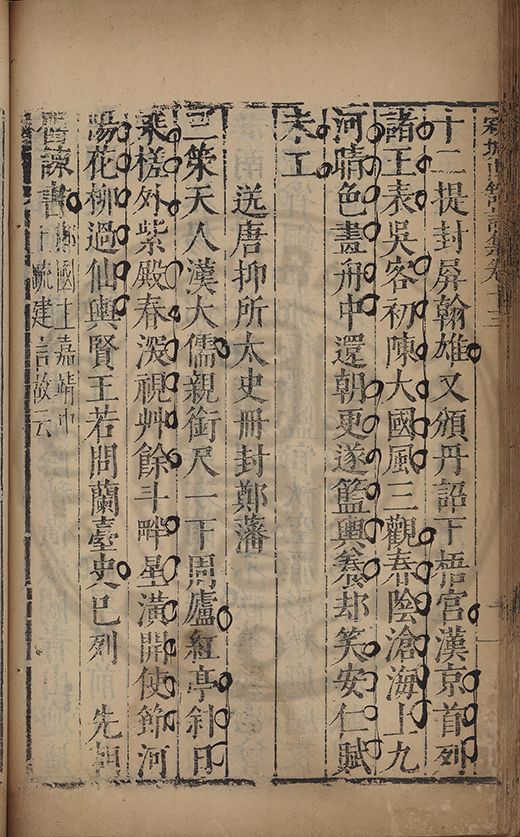 詩集卷
十二提封屏翰雄又頒丹詔下梧宮漢京首列
諸王表吳客初陳大國風三觀春陰滄海上九
河晴色盡舟中還朝更遂籃輿養却笑安仁賦
未工
送唐抑所太史冊封鄭藩
三策天人漢大儒親銜尺一下周廬紅亭斜日
乘槎外紫殿春深視艸餘斗畔星潢開使節河
陽花柳過仙輿賢王若問蘭臺史已列 先朝
舊諫書
鄭國王嘉靖中
上疏建言故云